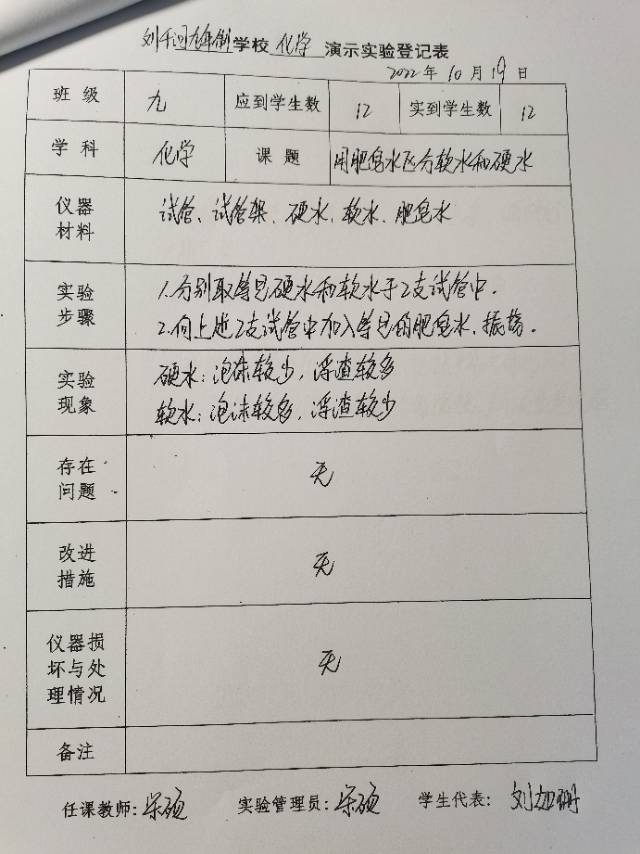 刘千河九年制学校 化学 演示实验登记表
2022年10月19日
班级 九 应到学生数 12 实到学生数 12
学科 化学 课题 用肥皂水区分软水和硬水
仪器材料 试管、试管架、硬水、软水、肥皂水
实验步骤 1.分别取等量硬水和软水于2支试管中.
2.向上述2支试管中加入等量的肥皂水,振荡.
实验现象 硬水:泡沫较少,浮渣较多
软水:泡沫较多,浮渣较少
存在问题 无
改进措施 无
仪器损坏与处理情况 无
备注
任课教师: 宋硕 实验管理员: 宋硕 学生代表: 刘加珊